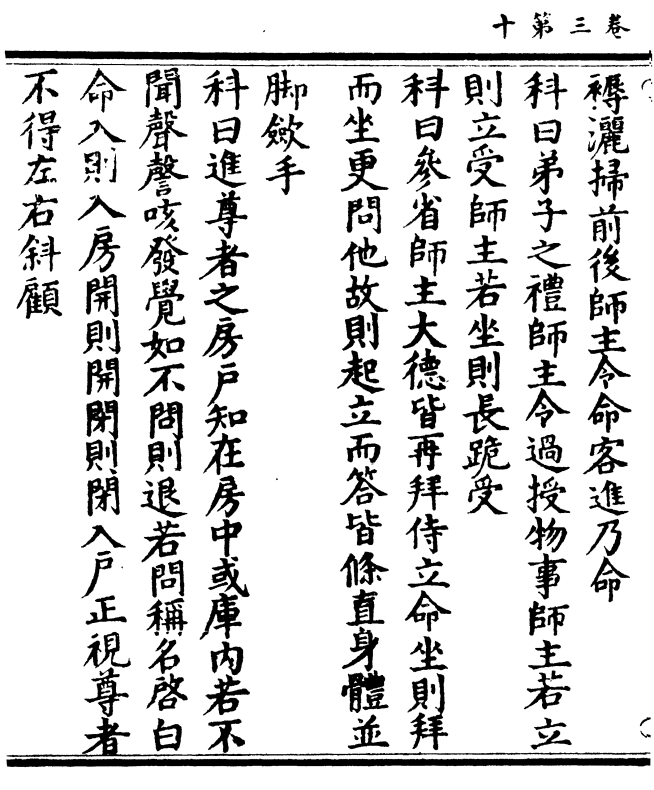 卷三第十
褥灑掃前後師主令命客進乃命
科曰弟子之禮師主令過授物事師主若立
則立受師主若坐則長跪受
科曰參省師主大德皆再拜侍立命坐則拜
而坐更問他故則起立而答皆條直身體並
脚歛手
科曰進尊者之房戶知在房中或庫內若不
聞聲謦咳發覺如不問則退若問稱名啓白
命入則入房開則開閉則閉入戶正視尊者
不得左右斜顧